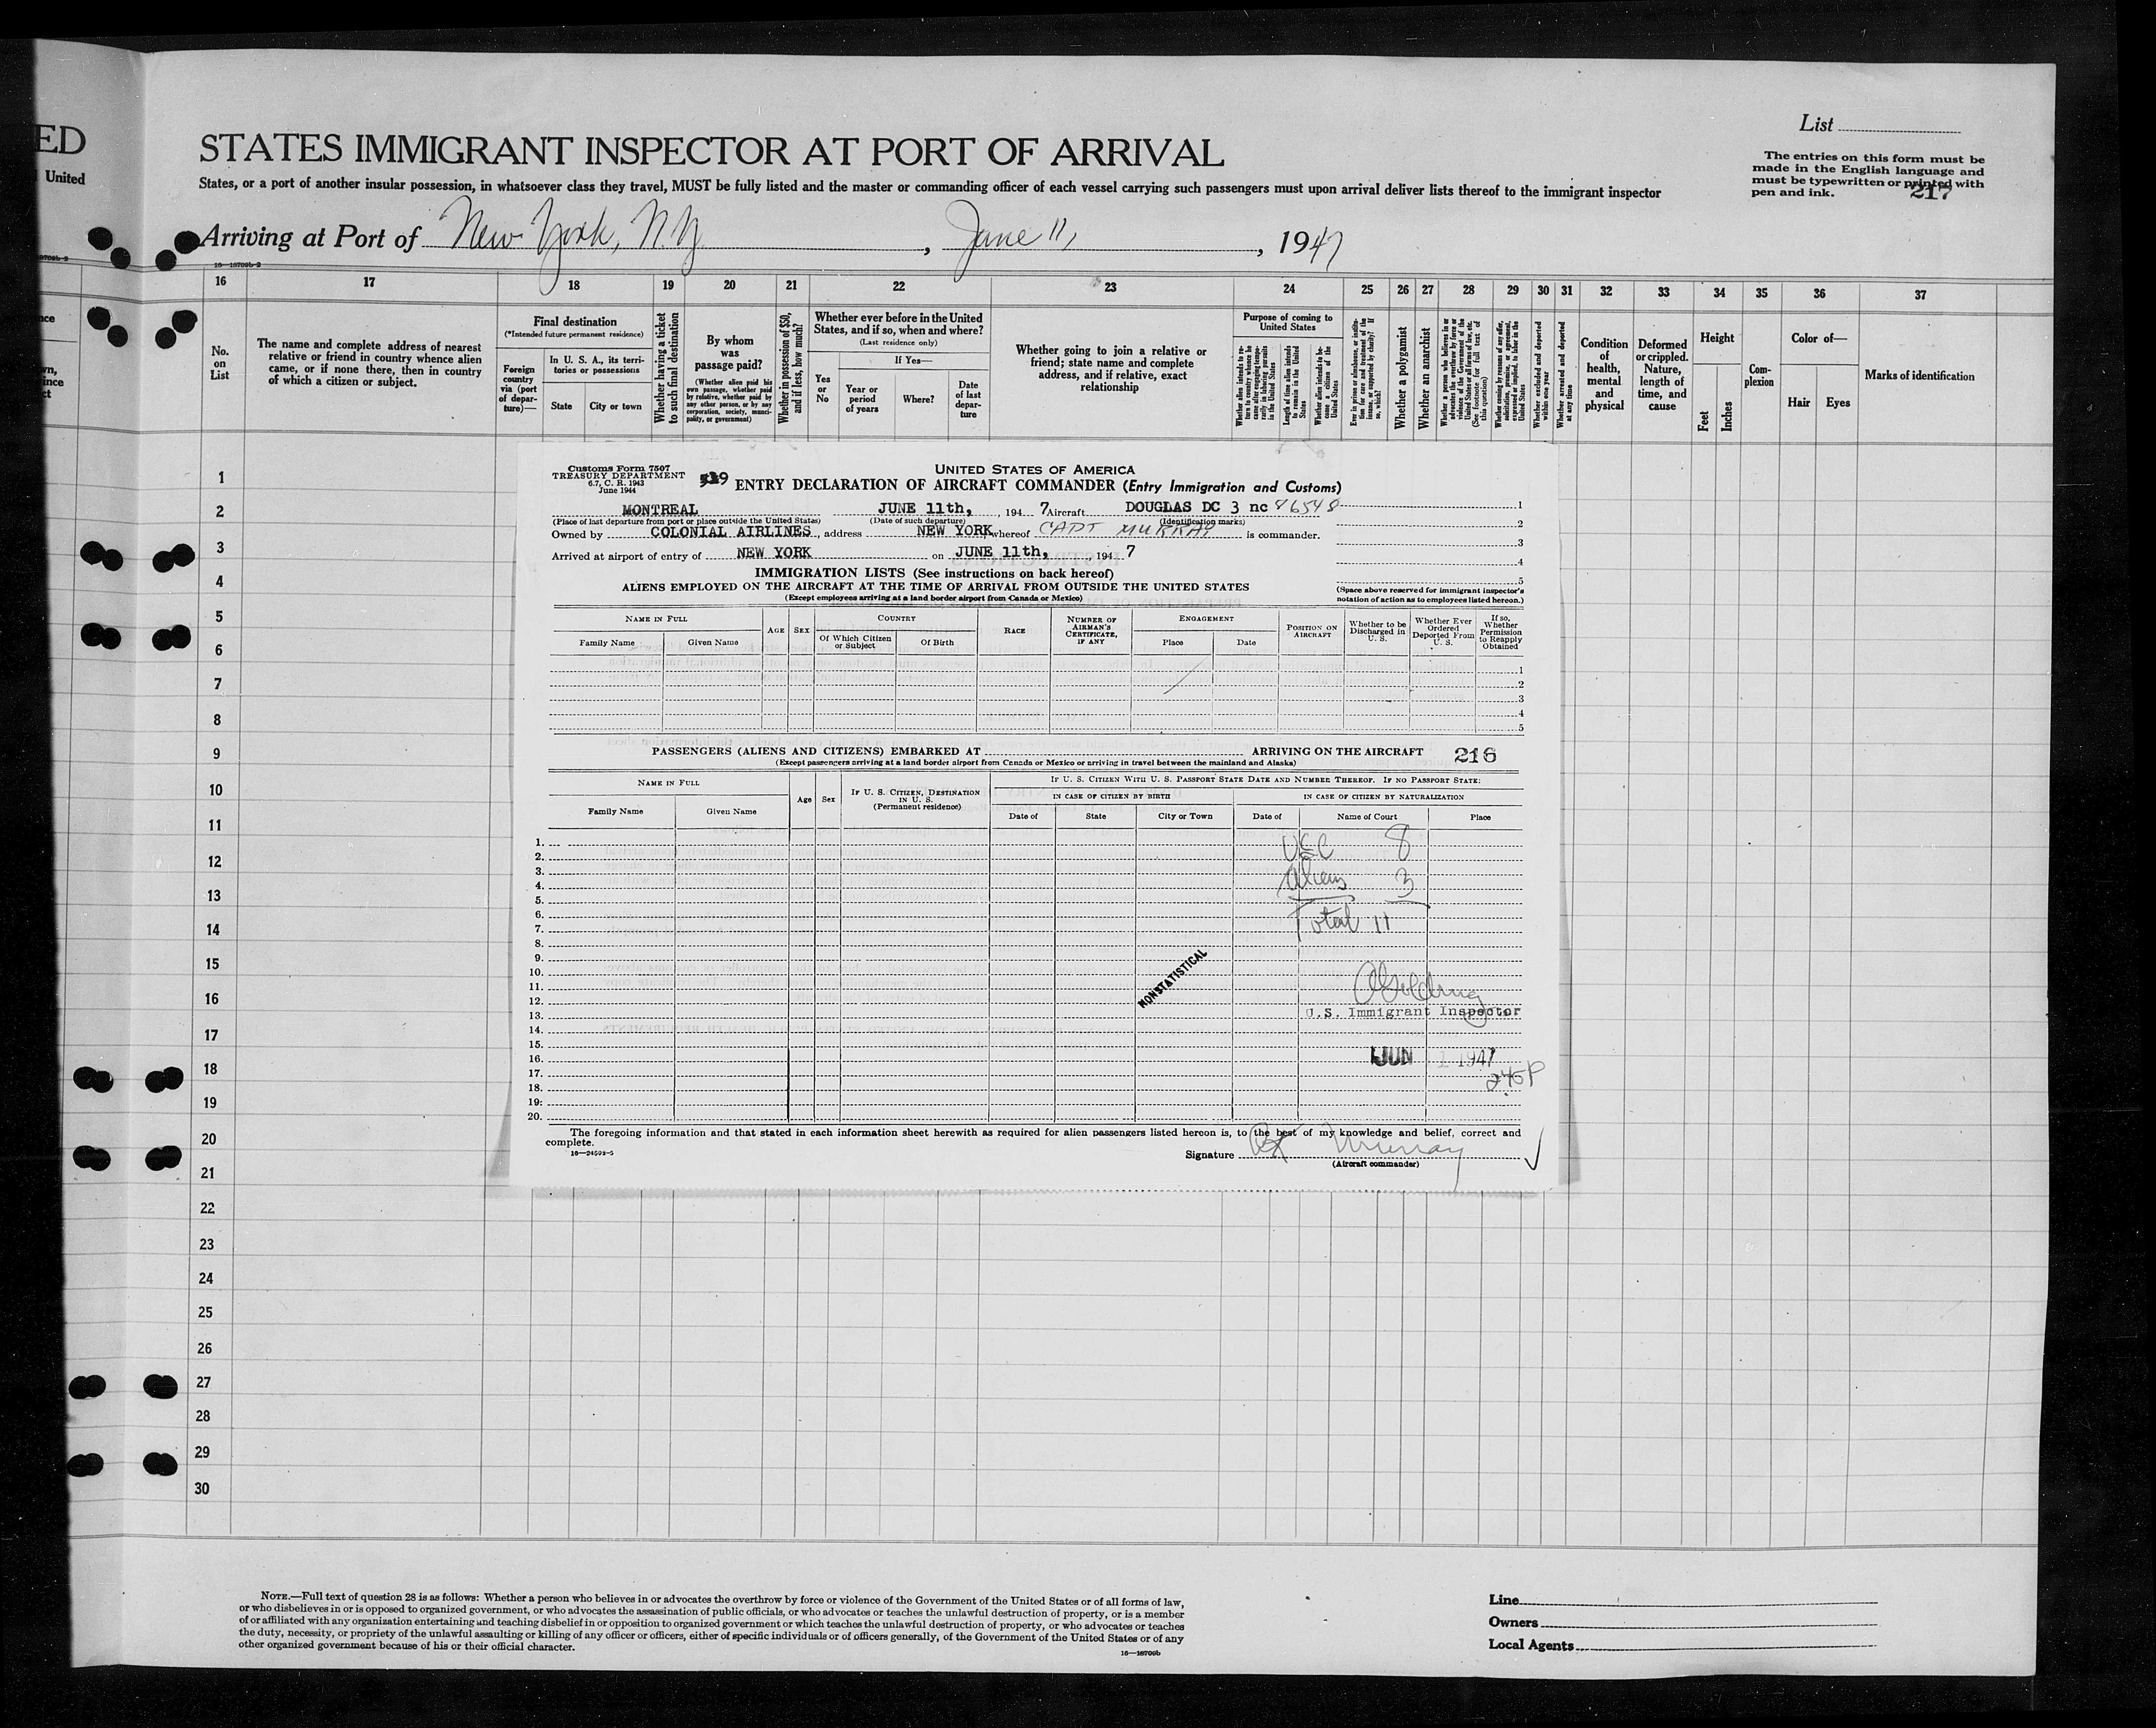 ED
United
STATES IMMIGRANT INSPECTOR AT PORT OF ARRIVAL
List
States, or a port of another insular possession, in whatsoever class they travel, MUST be fully listed and the master or commanding officer of each vessel carrying such passengers must upon arrival deliver lists thereof to the immigrant inspector
The entries on this form must be
made in the English language and
must be typewritten or printed with
pen and ink.
217
Arriving at Port of New York, N.Y., June 11, 1947
16 17 18 19 20 21 22 23 24 25 26 27 28 29 30 31 32 33 34 35 36 37
No. on List
The name and complete address of nearest
relative or friend in country whence alien
came, or if none there, then in country
of which a citizen or subject.
Final destination
(*Intended future permanent residence)
Foreign country via (port of departure)—
In U. S. A., its territories or possessions
State
City or town
Whether having a ticket to such final destination
By whom was passage paid?
(Whether alien paid his own passage, whether paid by relative, whether paid by any other person, or by any corporation, society, municipality, or government)
Whether in possession of $50, and if less, how much?
Whether ever before in the United
States, and if so, when and where?
(Last residence only)
Yes or No
If Yes—
Year or period of years
Where?
Date of last departure
Whether going to join a relative or
friend; state name and complete
address, and if relative, exact
relationship
Purpose of coming to
United States
Length of time alien intends to remain in the United States
Whether alien intends to become a citizen of the United States
Whether a polygamist
Whether an anarchist
Whether excluded and deported within one year
Whether arrested and deported at any time
Condition of health, mental and physical
Deformed or crippled. Nature, length of time, and cause
Height
Feet
Inches
Complexion
Color of—
Hair
Eyes
Marks of identification
1
2
3
4
5
6
7
8
9
10
11
12
13
14
15
16
17
18
19
20
21
22
23
24
25
26
27
28
29
30
Customs Form 7507
TREASURY DEPARTMENT
6.7, C. R. 1943
June 1944
UNITED STATES OF AMERICA
ENTRY DECLARATION OF AIRCRAFT COMMANDER (Entry Immigration and Customs)
MONTREAL JUNE 11th, , 194 7 Aircraft DOUGLAS DC 3 nc 86548
(Place of last departure from port or place outside the United States) (Date of such departure) (Identification marks)
Owned by COLONIAL AIRLINES, address NEW YORK whereof CAPT MURRAY is commander.
Arrived at airport of entry of NEW YORK on JUNE 11th, , 194 7
1
2
3
4
5
IMMIGRATION LISTS (See instructions on back hereof)
ALIENS EMPLOYED ON THE AIRCRAFT AT THE TIME OF ARRIVAL FROM OUTSIDE THE UNITED STATES
(Except employees arriving at a land border airport from Canada or Mexico)
(Space above reserved for immigrant inspector's
notation of action as to employees listed hereon.)
NAME IN FULL
Family Name
Given Name
AGE
SEX
COUNTRY
Of Which Citizen or Subject
Of Birth
RACE
NUMBER OF AIRMAN'S CERTIFICATE, IF ANY
ENGAGEMENT
Place
Date
POSITION ON AIRCRAFT
Whether to be Discharged in U. S.
Whether Ever Ordered Deported From U. S.
If so, Whether Permission to Reapply Obtained
1
2
3
4
5
PASSENGERS (ALIENS AND CITIZENS) EMBARKED AT ARRIVING ON THE AIRCRAFT 216
(Except passengers arriving at a land border airport from Canada or Mexico or arriving in travel between the mainland and Alaska)
NAME IN FULL
Family Name
Given Name
Age
Sex
IF U. S. CITIZEN, DESTINATION
IN U. S.
(Permanent residence)
IF U. S. CITIZEN WITH U. S. PASSPORT STATE DATE AND NUMBER THEREOF. IF NO PASSPORT STATE:
IN CASE OF CITIZEN BY BIRTH
IN CASE OF CITIZEN BY NATURALIZATION
Date of
State
City or Town
Date of
Name of Court
Place
1.
2.
3.
4.
5.
6.
7.
8.
9.
10.
11.
12.
13.
14.
15.
16.
17.
18.
19.
20.
USC 8
Aliens 3
Total 11
NONSTATISTICAL
U.S. Immigrant Inspector
JUN 11 1947
245P
The foregoing information and that stated in each information sheet herewith as required for alien passengers listed hereon is, to the best of my knowledge and belief, correct and
complete.
16—24593-5
Signature Murray
(Aircraft commander)
NOTE.—Full text of question 28 is as follows: Whether a person who believes in or advocates the overthrow by force or violence of the Government of the United States or of all forms of law,
or who disbelieves in or is opposed to organized government, or who advocates the assassination of public officials, or who advocates or teaches the unlawful destruction of property, or is a member
of or affiliated with any organization entertaining and teaching disbelief in or opposition to organized government or which teaches the unlawful destruction of property, or who advocates or teaches
the duty, necessity, or propriety of the unlawful assaulting or killing of any officer or officers, either of specific individuals or of officers generally, of the Government of the United States or of any
other organized government because of his or their official character.
16—18709b
Line
Owners
Local Agents